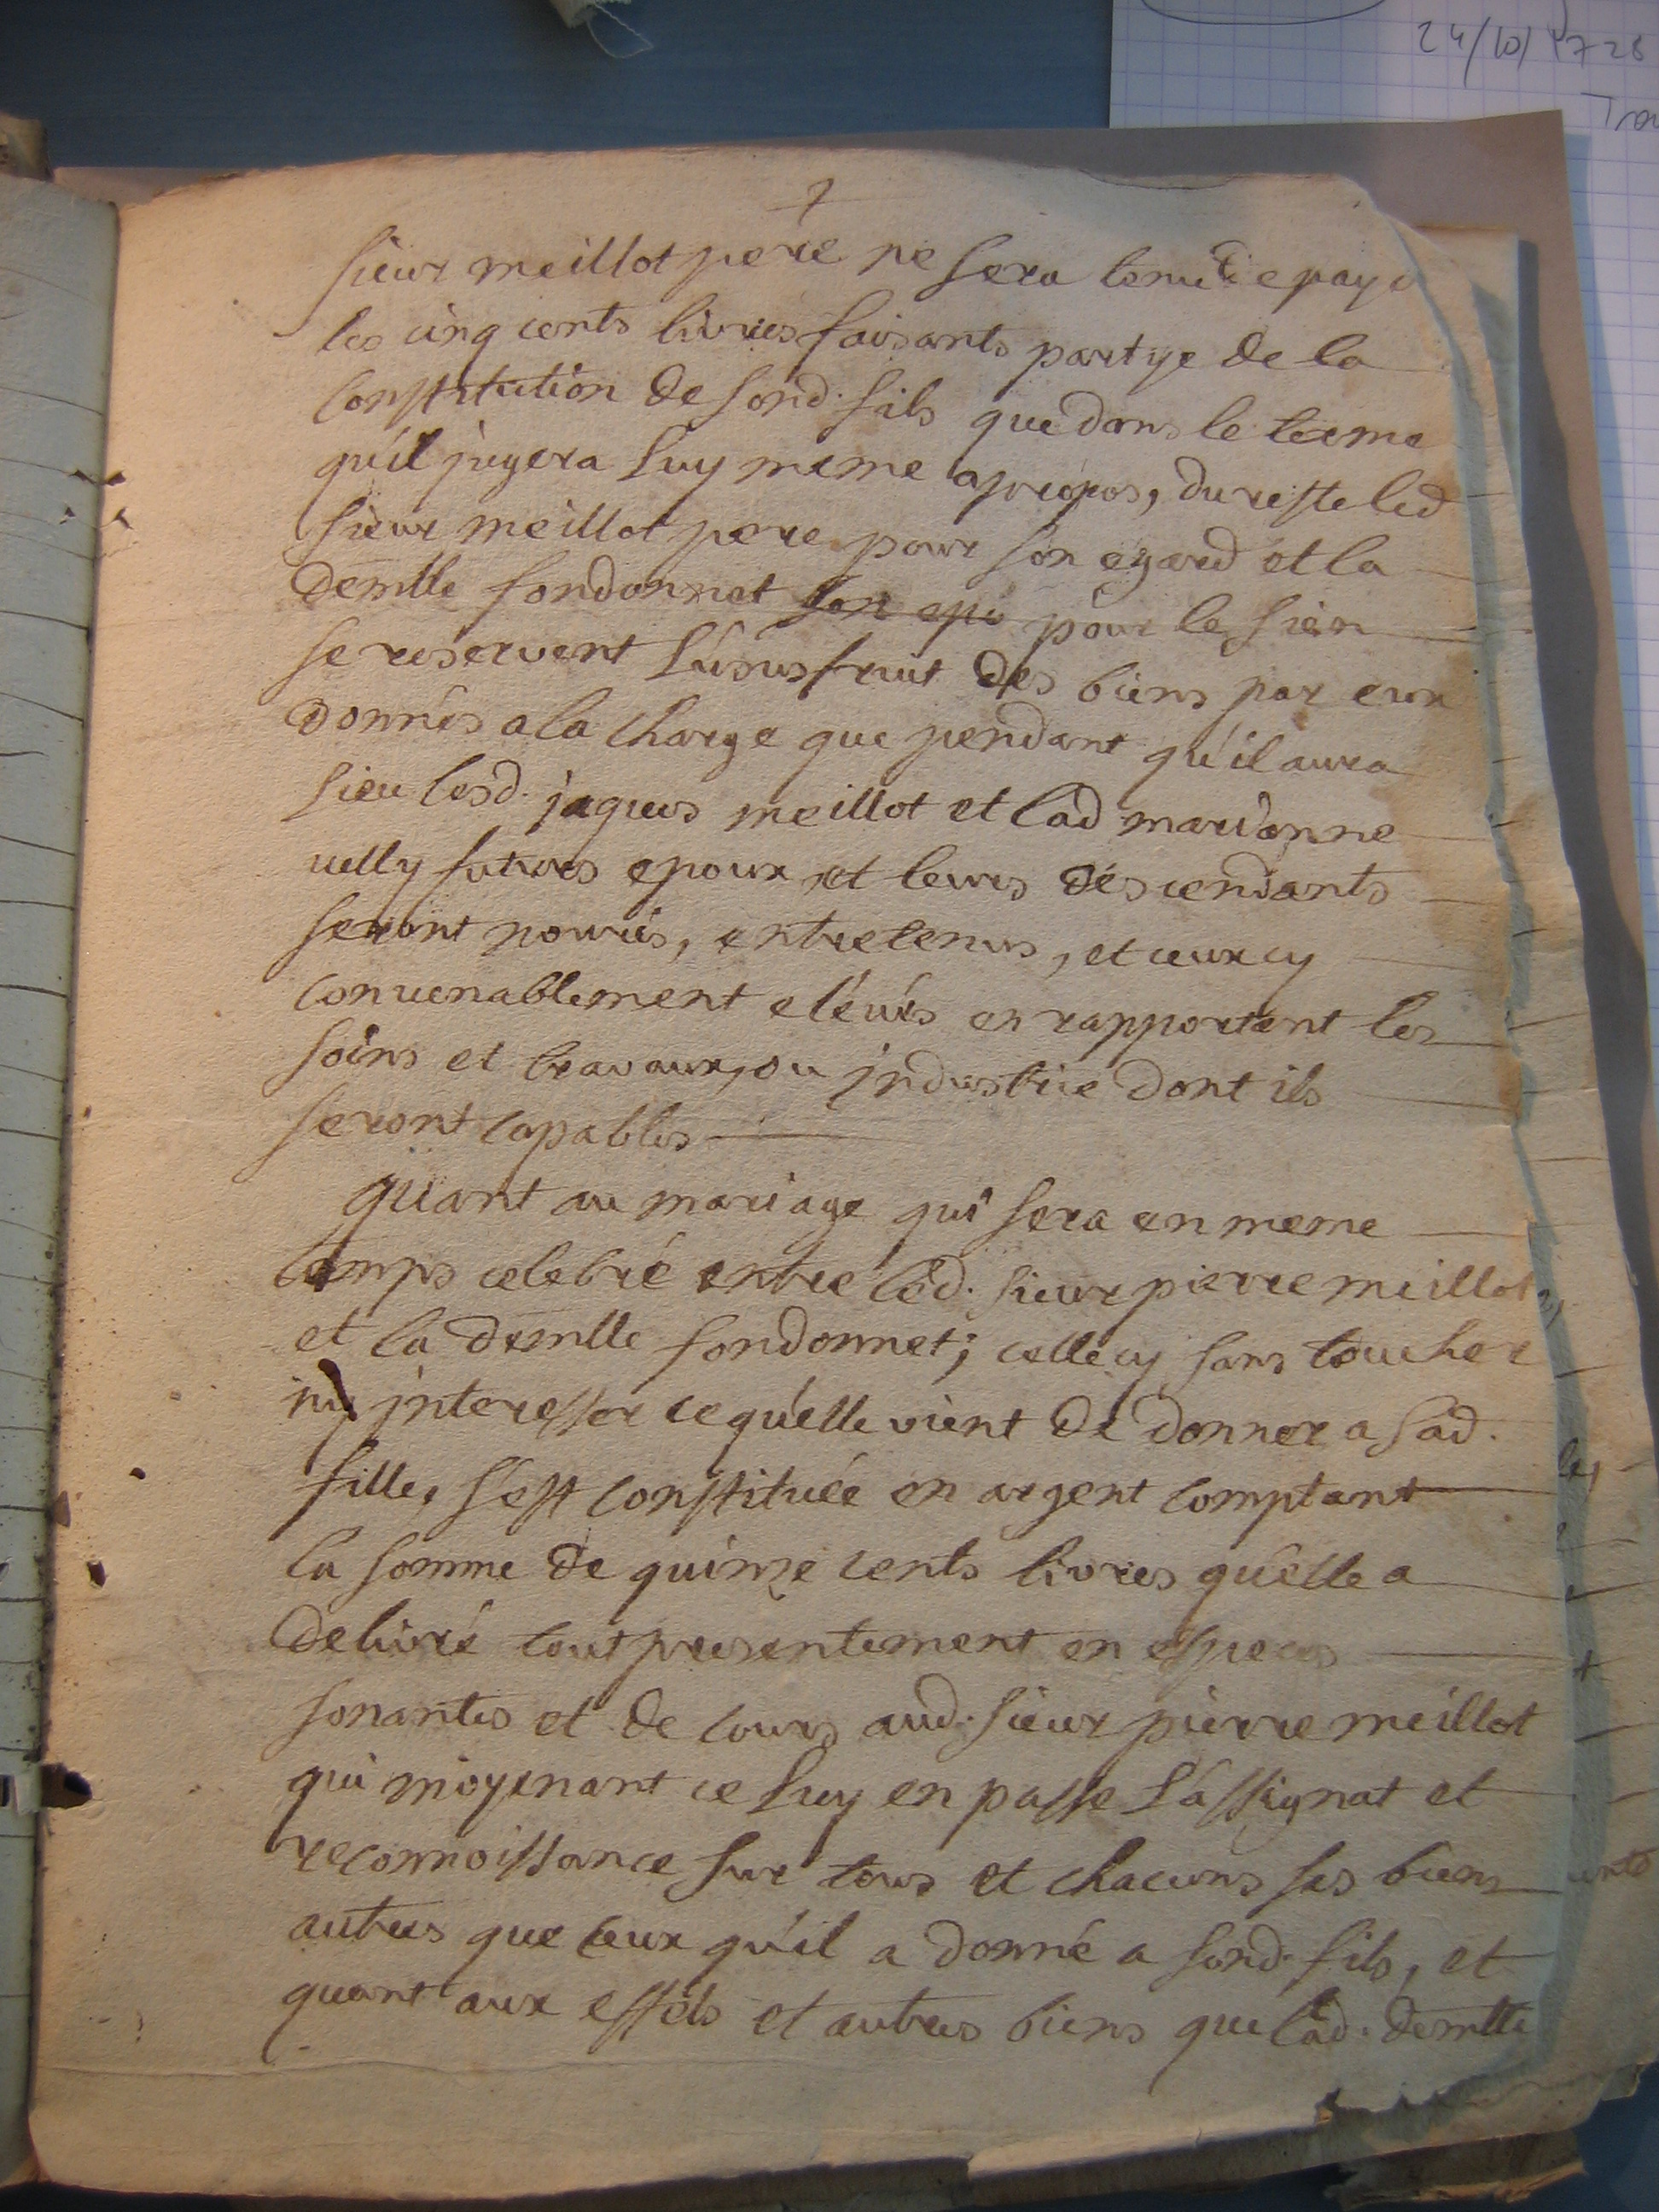 24/10/1728
7
sieur meillot pere ne sera tenu de paye
les cinq cents livres faisants partye de la
constitution de sond. fils que dans le terme
qu'il jugera luy meme apropos, du reste led
sieur meillot pere pour son egard et la
demlle fondonnet son epo pour le sien
se reservent l'usufruit des biens par eux
donnés a la charge que pendant qu'il aura
lieu lesd. jaques meillot et lad mardanne
uelly futurs epoux et leurs descendants
seront nourris, entretenus, et ceux cy
convenablement elévés en rapportant les
soins et travaux, ou industrie dont ils
seront capables
quant au mariage qui sera en meme
temps celebré entre led. sieur pierre meillot
et la demlle fondonnet; celle cy sans toucher
ny interesser ce qu'elle vient de donner a sad.
fille, s'est constituée en argent comptant
la somme de quinze cents livres qu'elle a
delivré tout presentement en especes
sonantes et de cours aud. sieur pierre meillot
qui moyenant ce luy en passe l'assignat et
reconnoissance sur tous et chacuns ses biens
autres que ceux qu'il a donné a sond. fils, et
quant aux effets et autres biens que lad. demlle